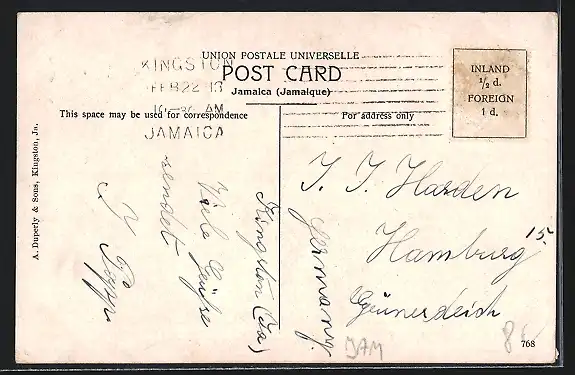 UNION POSTALE UNIVERSELLE
POST CARD
Jamaica (Jamaique)
KINGSTON
FEB 22 13
AM
JAMAICA
INLAND
½ d.
FOREIGN
1 d.
This space may be used for correspondence
For address only
A. Duperly & Sons, Kingston, Ja.
Kingston (Ja)
Viele Grüße
sendet
Hamburg 15.
Germany.
JAM
768